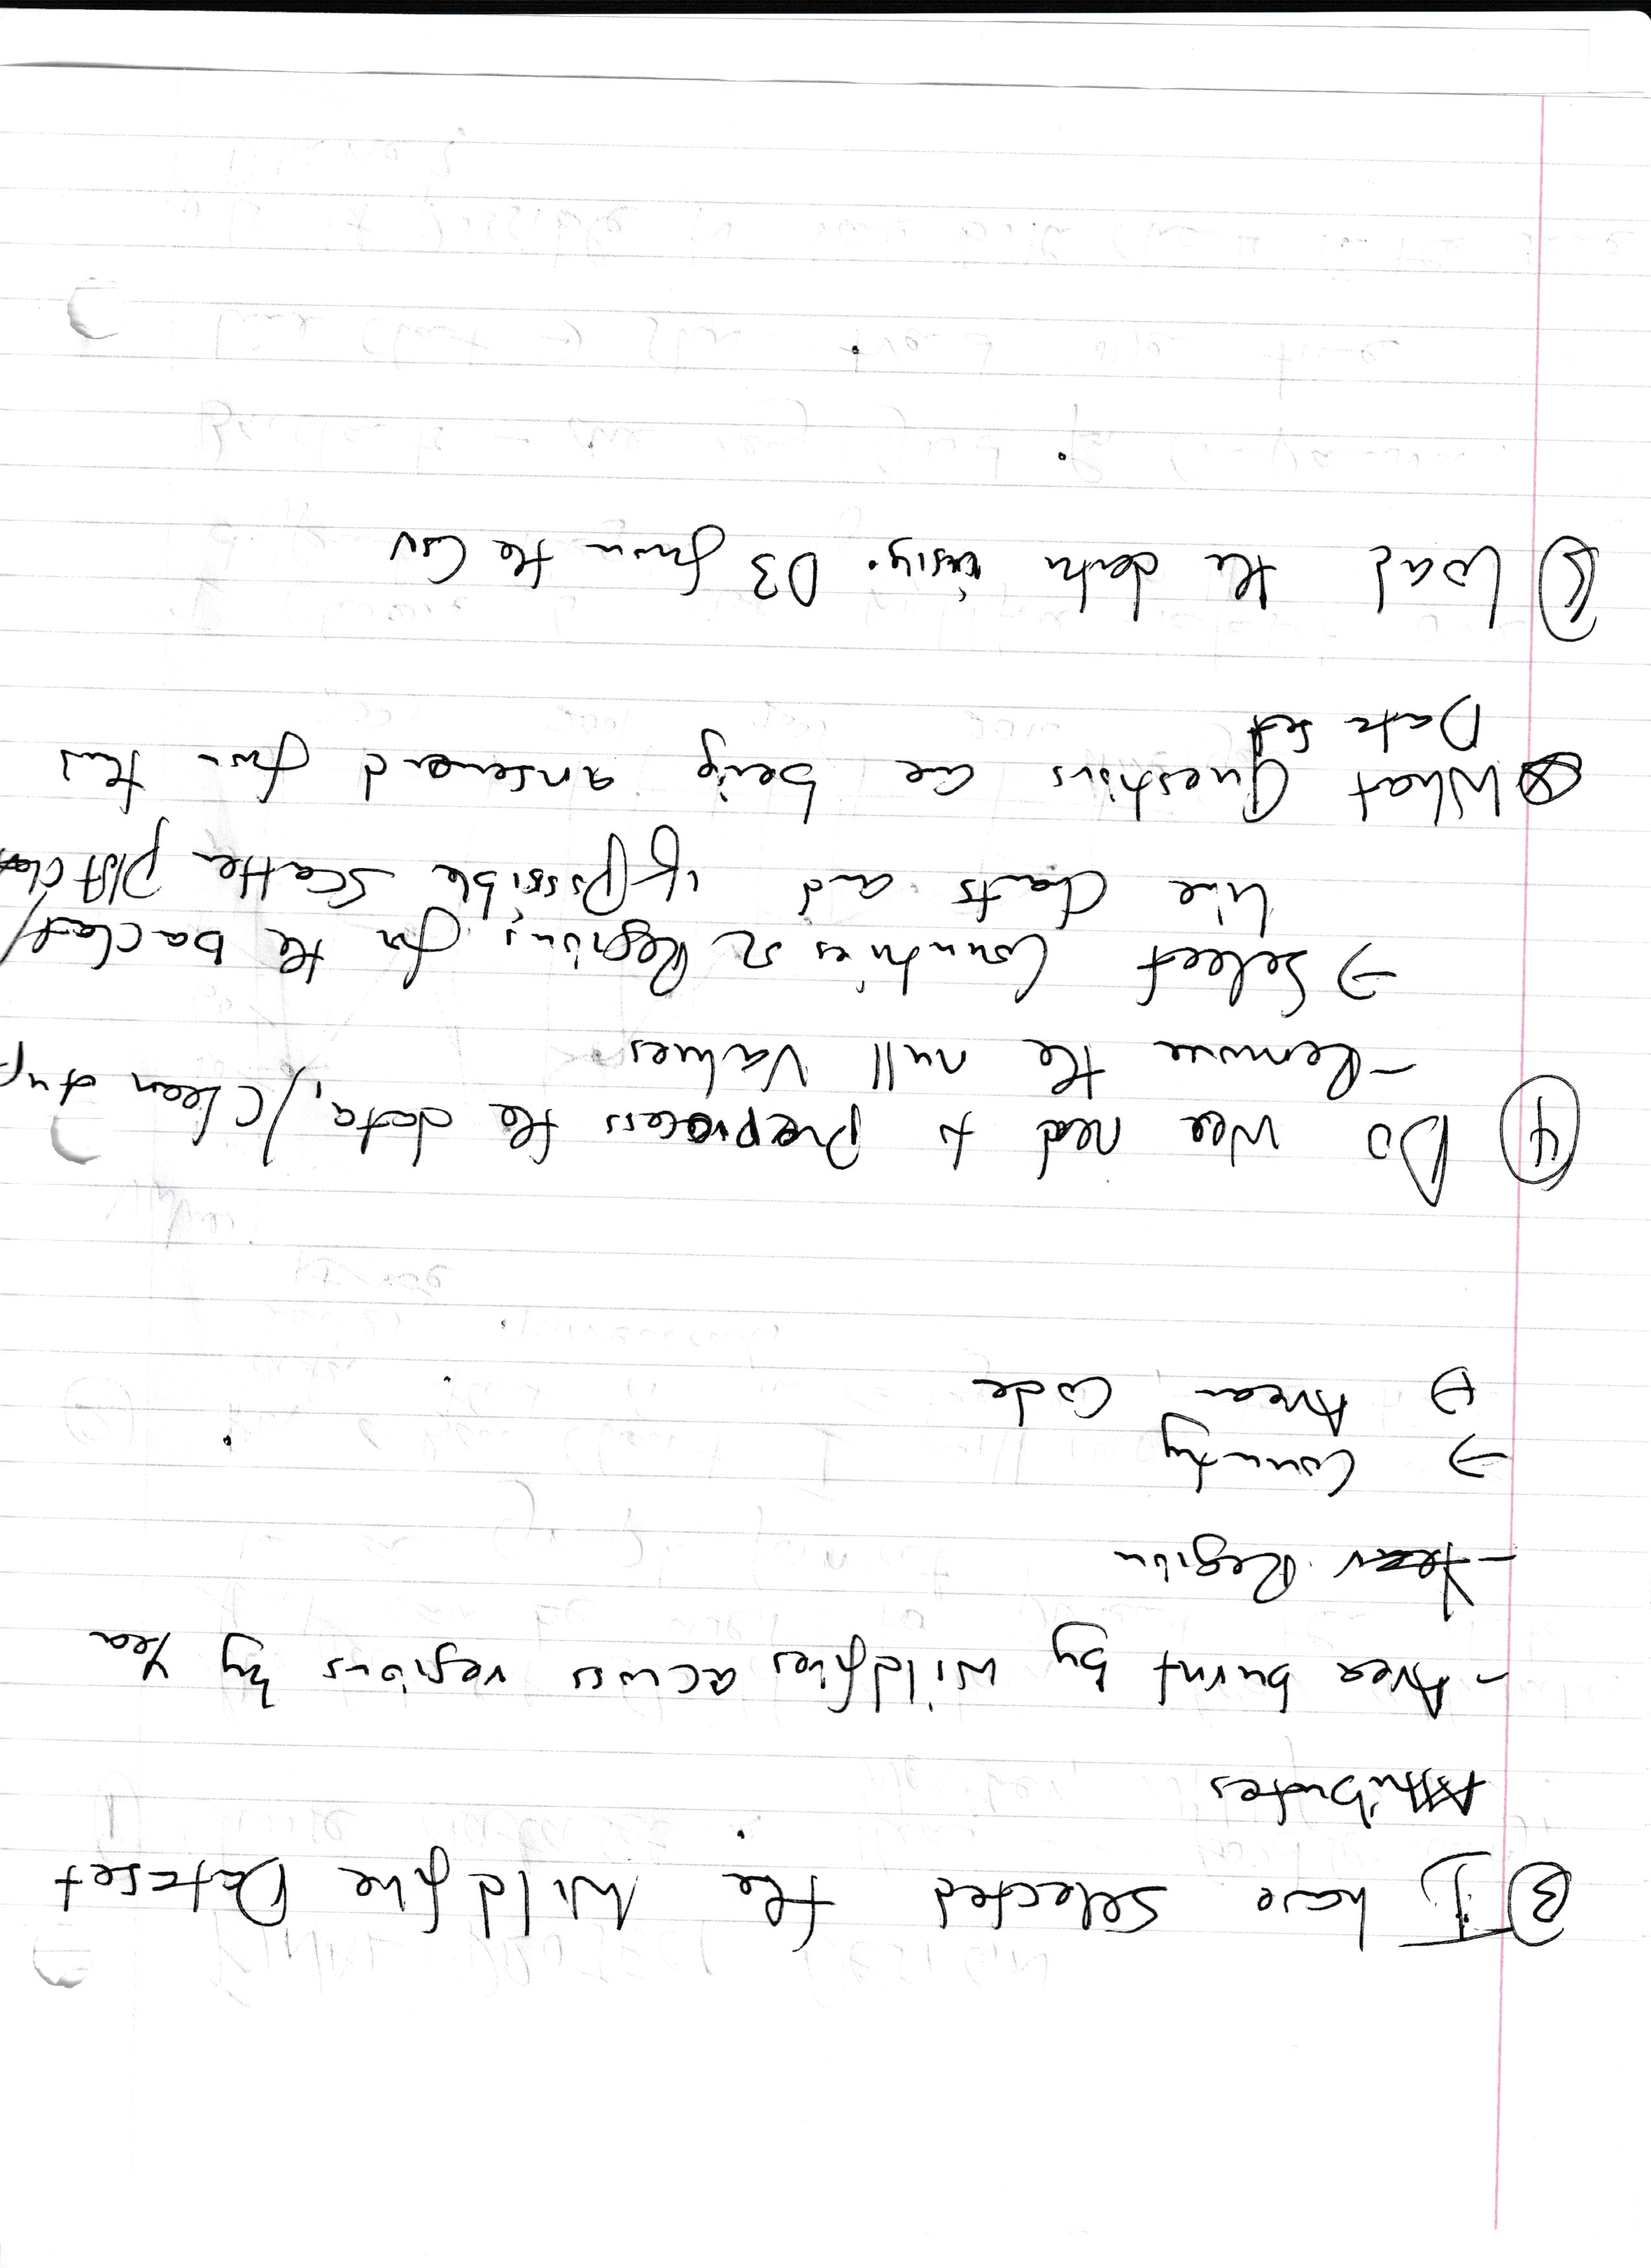 ③ I have selected the Wildfire Dataset
Attributes
- Area burnt by wildfires across regions by Yea
- Year Region
→ County
→ Area Code
④ Do wee need to Preprocess the data, / Clean it up
- Remove the null Values
→ Select Countries or Regions for the barchart/
line charts and if possible Scatter plot
What Questions are being answered from this
Data Set
⑤ Load the data using D3 from the Csv